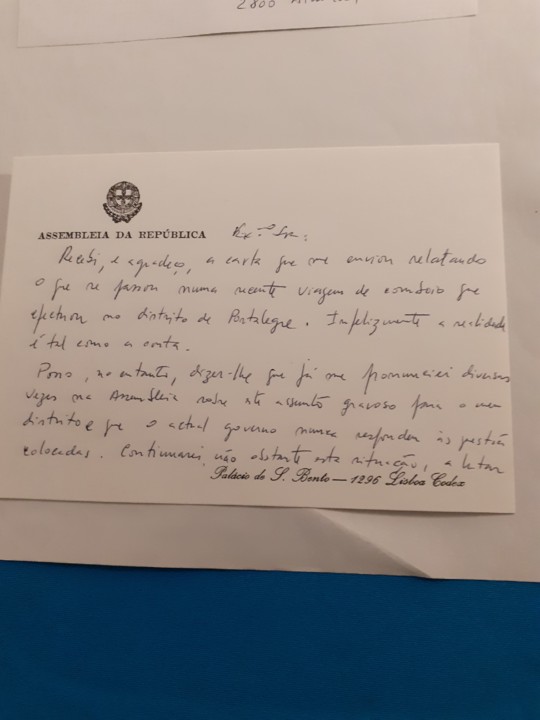 2800
ASSEMBLEIA DA REPÚBLICA
Ex.º Sr.:
Recebi, e agradeço, a carta que me enviou relatando
o que se passou numa recente viagem de comboio que
efectuou no distrito de Portalegre. Infelizmente a realidade
é tal como a conta.
Posso, no entanto, dizer-lhe que já me pronunciei diversas
vezes na Assembleia sobre este assunto gravoso para o meu
distrito e que o actual governo nunca respondeu às questões
colocadas. Continuarei, não obstante esta situação, a lutar
Palácio de S. Bento — 1296 Lisboa Codex